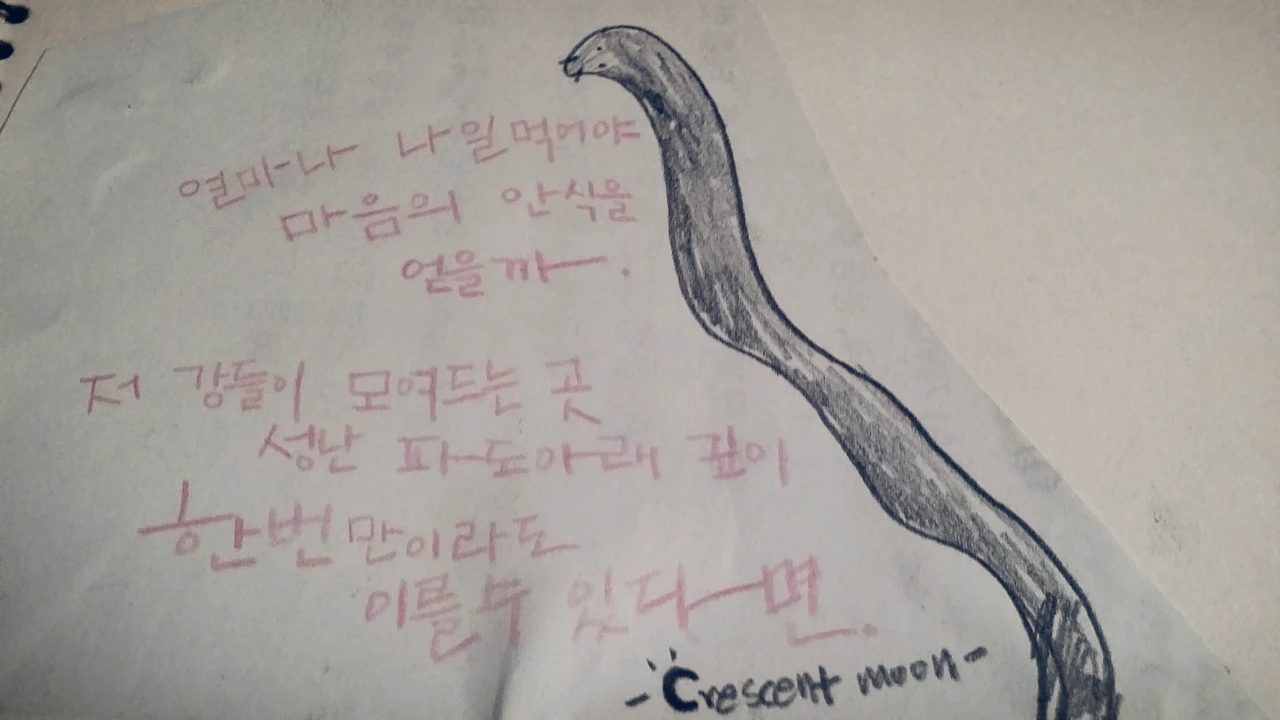 얼마나 나일먹어야
마음의 안식을
얻을까 .
저 강들이 모여드는 곳
성난 파도아래 깊이
한번만이라도
이를수 있다면.
- Crescent moon -